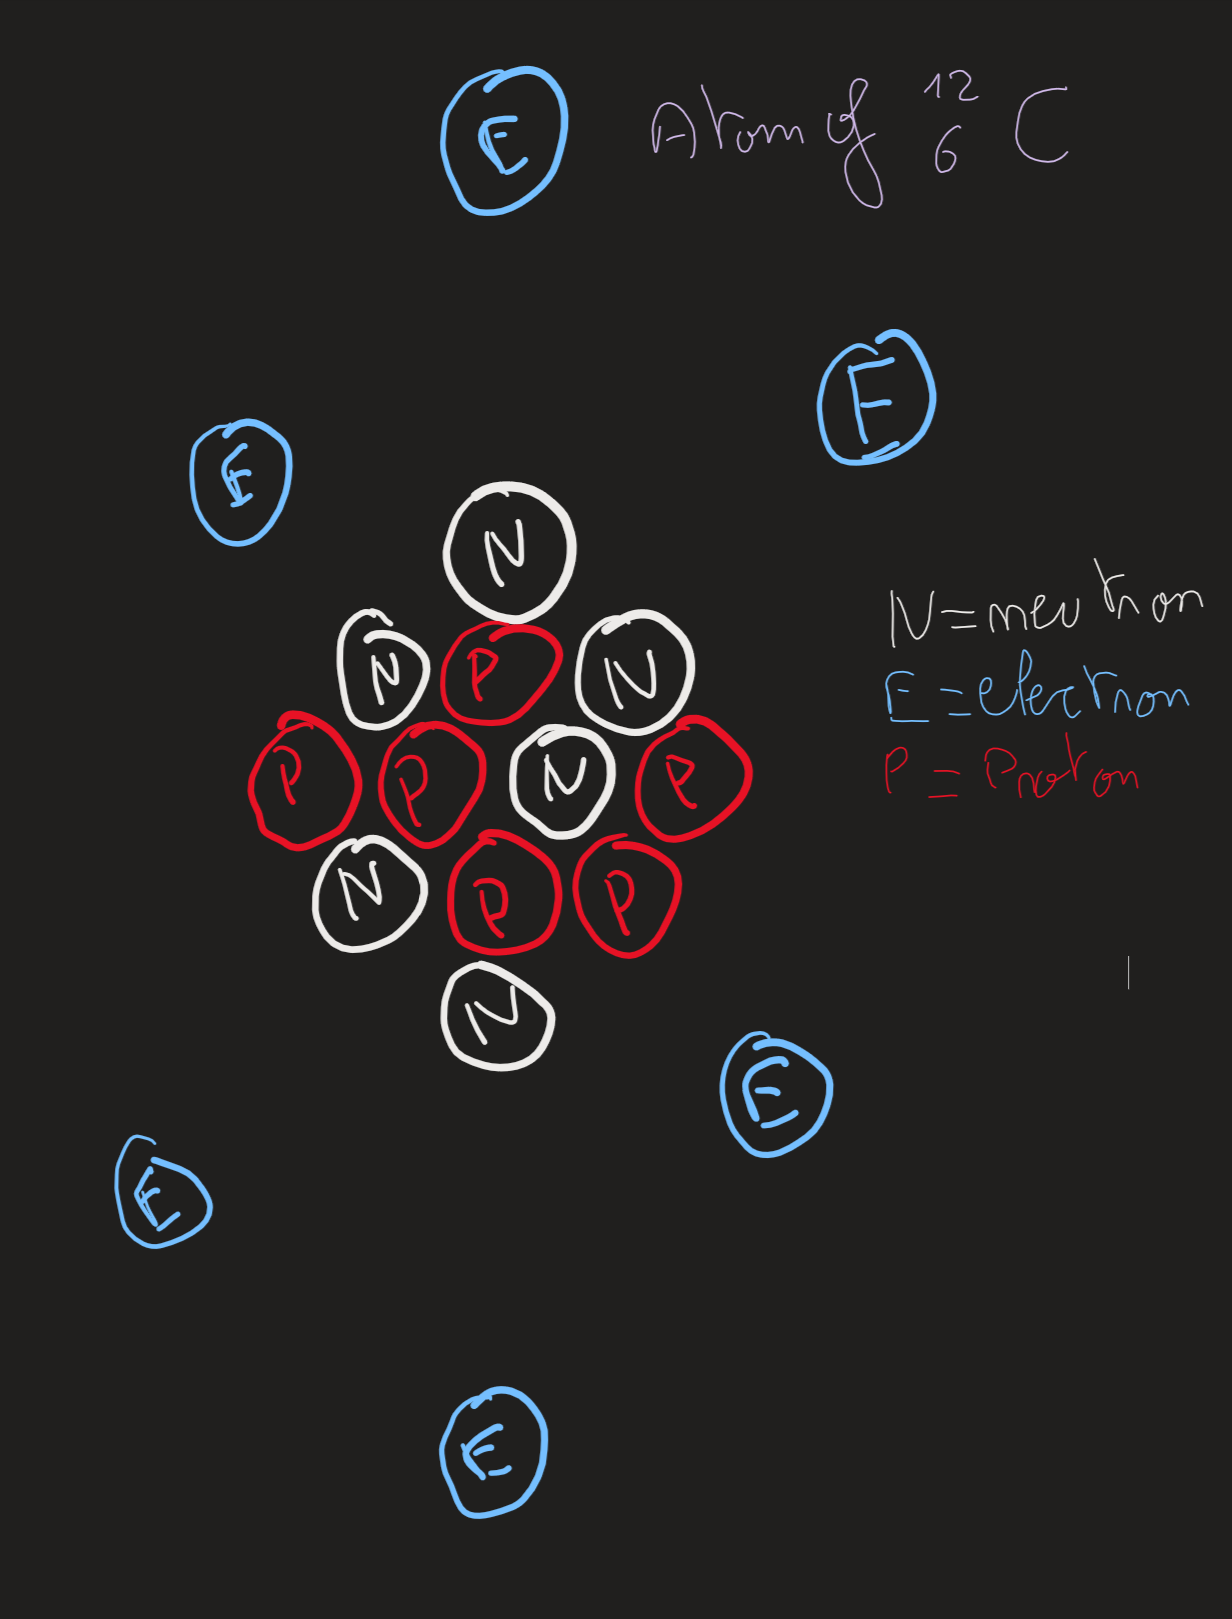 E
Atom of 12 6 C
E
E
N
N P N
P P N P
N P P
N
N = neutron
E = electron
P = Proton
E
E
E